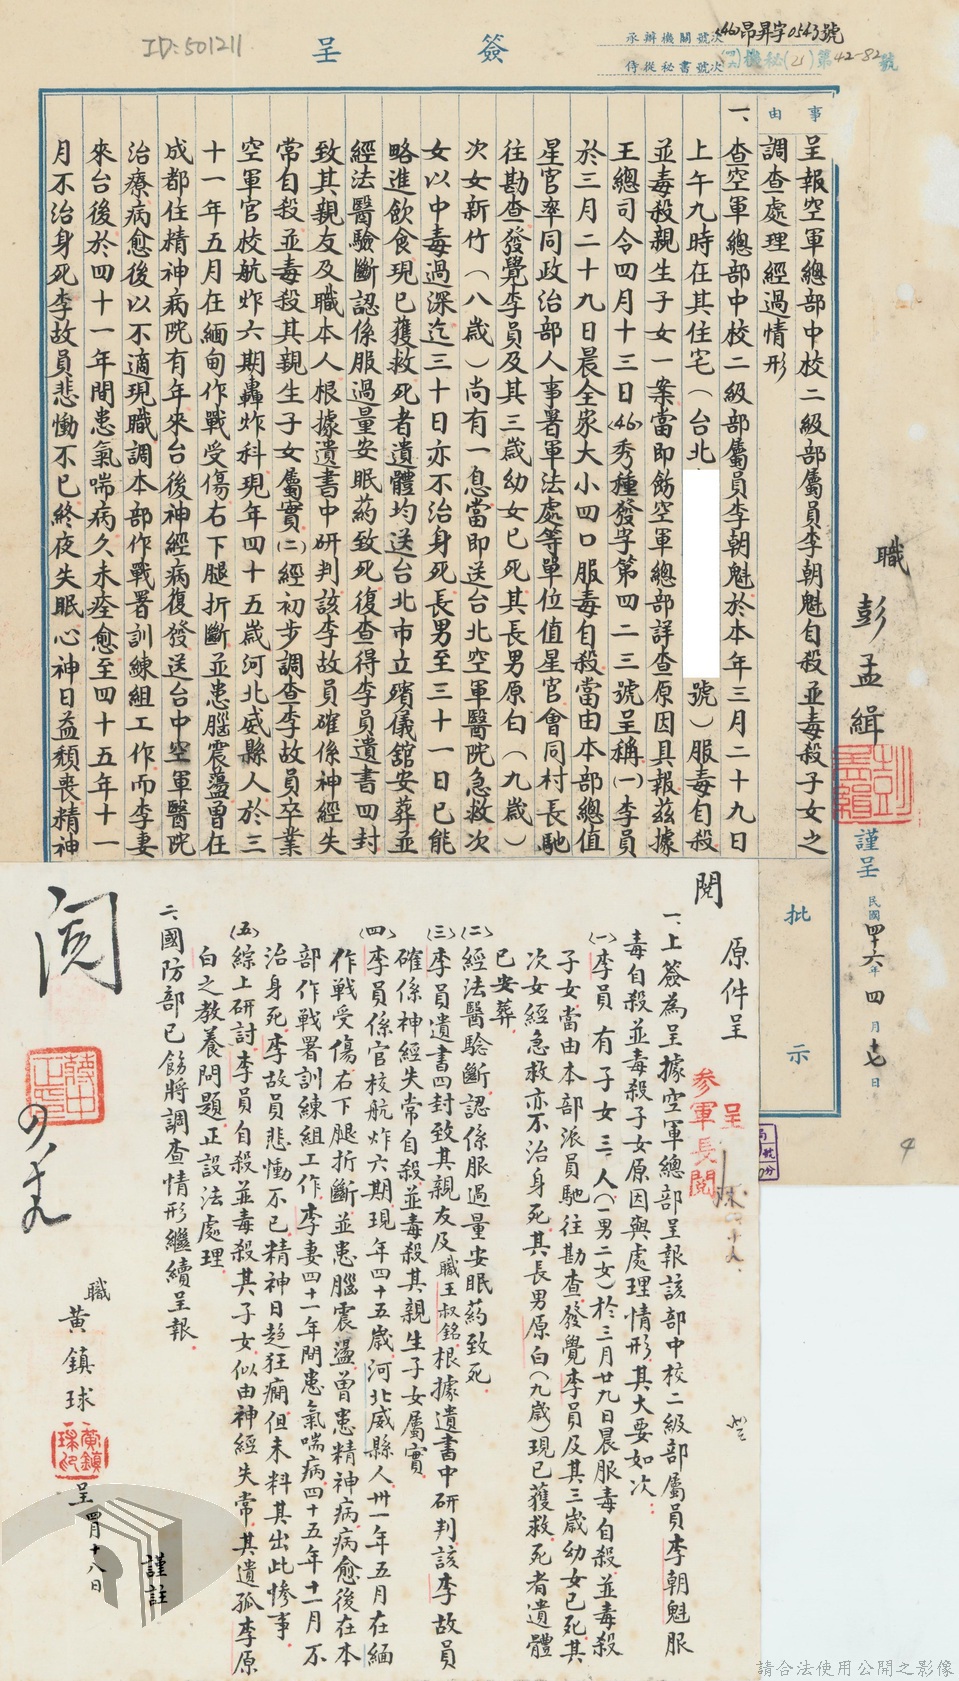 ID:501211
簽呈
承辦機關號次
(46)昂昇字0543號
侍從秘書號次
(四六)機秘(乙)第42-82號
職彭孟緝
謹呈
民國四十六年四月十七日
事由
批示
呈報空軍總部中校二級部屬員李朝魁自殺並毒殺子女之
調查處理經過情形
一、查空軍總部中校二級部屬員李朝魁於本年三月二十九日
上午九時在其住宅(台北
號)服毒自殺
並毒殺親生子女一案當即飭空軍總部詳查原因具報茲據
王總司令四月十三日(46)秀種發字第四二三號呈稱(一)李員
於三月二十九日晨全家大小四口服毒自殺當由本部總值
星官率同政治部人事署軍法處等單位值星官會同村長馳
往勘查發覺李員及其三歲幼女已死其長男原白(九歲)
次女新竹(八歲)尚有一息當即送台北空軍醫院急救次
女以中毒過深迄三十日亦不治身死長男至三十一日已能
略進飲食現已獲救死者遺體均送台北市立殯儀舘安葬並
經法醫驗斷認係服過量安眠葯致死復查得李員遺書四封
致其親友及職本人根據遺書中研判該李故員確係神經失
常自殺並毒殺其親生子女屬實(二)經初步調查李故員卒業
空軍官校航炸六期轟炸科現年四十五歲河北威縣人於三
十一年五月在緬甸作戰受傷右下腿折斷並患腦震盪曾在
成都住精神病院有年來台後神經病復發送台中空軍醫院
治療病愈後以不適現職調本部作戰署訓練組工作而李妻
來台後於四十一年間患氣喘病久未痊愈至四十五年十一
月不治身死李故員悲慟不已終夜失眠心神日益頹喪精神
閱
原件呈
呈
參軍長閱
一、上簽為呈據空軍總部呈報該部中校二級部屬員李朝魁服
毒自殺並毒殺子女原因與處理情形其大要如次:
(一)李員有子女三人(一男二女)於三月廿九日晨服毒自殺並毒殺
子女當由本部派員馳往勘查發覺李員及其三歲幼女已死其
次女經急救亦不治身死其長男原白(九歲)現已獲救死者遺體
已安葬
(二)經法醫驗斷認係服過量安眠葯致死
(三)李員遺書四封致其親友及職王叔銘根據遺書中研判該李故員
確係神經失常自殺並毒殺其親生子女屬實
(四)李員係官校航炸六期現年四十五歲河北威縣人卅一年五月在緬
作戰受傷右下腿折斷並患腦震盪曾患精神病病愈後在本
部作戰署訓練組工作李妻四十一年間患氣喘病四十五年十一月不
治身死李故員悲慟不已精神日趨狂癎但未料其出此慘事
(五)綜上研討李員自殺並毒殺其子女似由神經失常其遺孤李原
白之教養問題正設法處理
二、國防部已飭將調查情形繼續呈報
職黃鎮球
呈四月十八日
謹註
閱
四、十九
4
請合法使用公開之影像